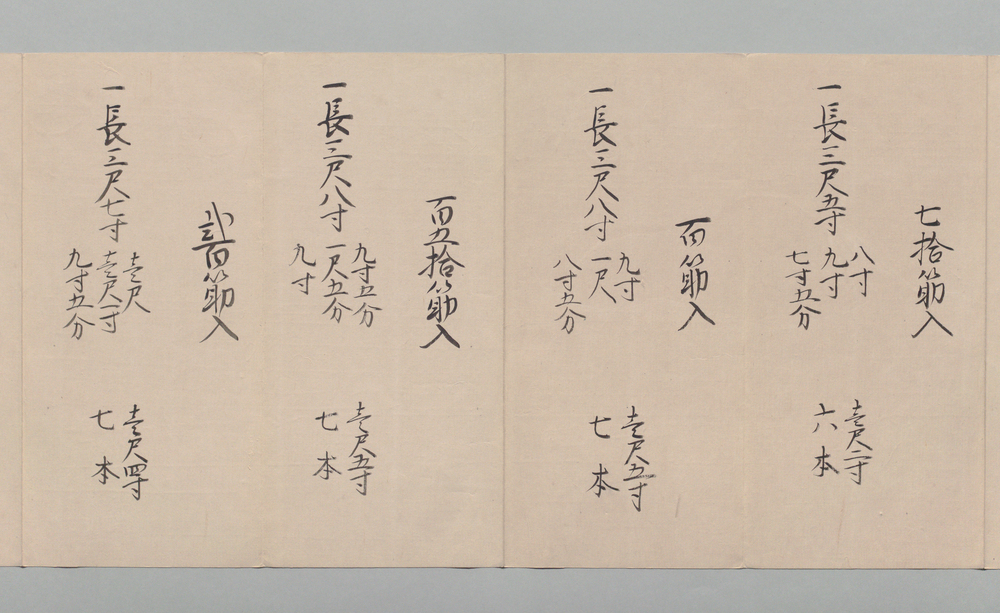 七拾筋入
一長三尺五寸
八寸
九寸
七寸五分
壱尺二寸
六本
百筋入
一長三尺八寸
九寸
一尺
八寸五分
壱尺五寸
七本
百五拾筋入
一長三尺八寸
九寸五分
一尺五分
九寸
壱尺五寸
七本
弐百筋入
一長三尺七寸
壱尺
壱尺一寸
九寸五分
壱尺四寸
七本